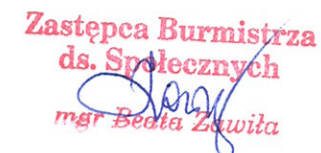 Zastępca Burmistrza
ds. Społecznych
mgr Beata Zawiła